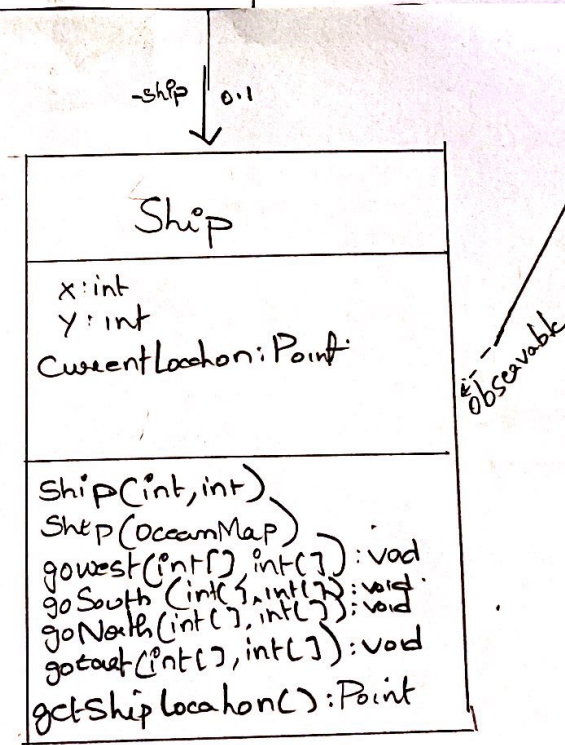 -ship 0..1
Ship
x: int
y: int
CurrentLocation: Point
observable
Ship(int, int)
Ship(OceanMap)
gowest(int[], int[]): void
goSouth (int[], int[]): void
goNorth(int[], int[]): void
goEast(int[], int[]): void
getShipLocation(): Point